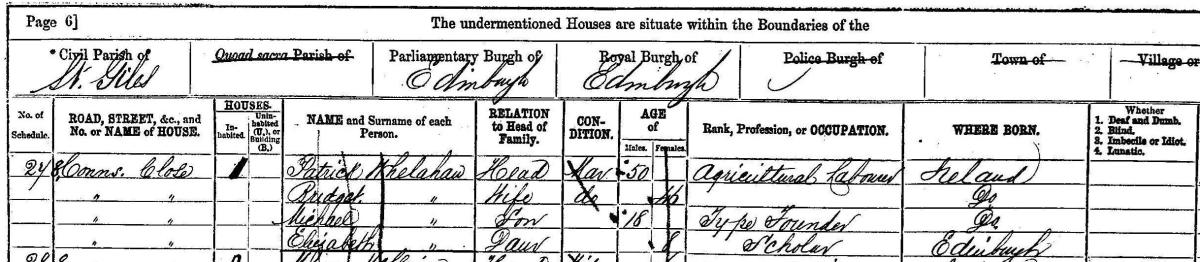 Page 6] The undermentioned Houses are situate within the Boundaries of the
*Civil Parish of Quoad sacra Parish of Parliamentary Burgh of Royal Burgh of Police Burgh of Town of Village or
St. Giles Edinburgh Edinburgh
No. of Schedule. ROAD, STREET, &c., and No. or NAME of HOUSE. HOUSES- In-habited. Unin-habited (U.), or Building (B.) NAME and Surname of each Person. RELATION to Head of Family. CON-DITION. AGE of Males. Females. Rank, Profession, or OCCUPATION. WHERE BORN. Whether 1. Deaf and Dumb. 2. Blind. 3. Imbecile or Idiot. 4. Lunatic.
248 Conns. Close 1 Patrick Whelahan Head Mar 50 Agricultural Labourer Ireland
" " Bridget " Wife do 46 Do
" " Michael " Son 18 Type Founder Do
" " Elizabeth " Daur 8 Scholar Edinburgh